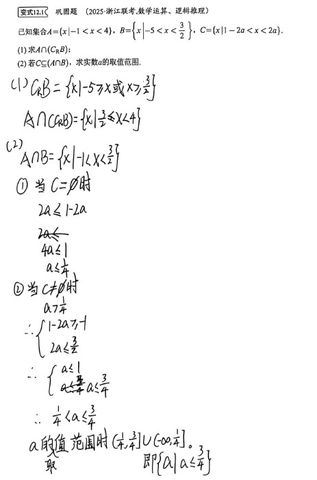 [变式12.1] 巩固题 (2025·浙江联考,数学运算、逻辑推理)
已知集合A={x|-1<x<4}, B={x|-5<x<3/2}, C={x|1-2a<x<2a}.
(1) 求A∩(C_RB);
(2) 若C⊆(A∩B), 求实数a的取值范围.
(1) C_RB={x|-5≥x或x≥3/2}
A∩(C_RB)={x|3/2≤x<4}
(2)
A∩B={x|-1<x<3/2}
① 当C=∅时
2a≤1-2a
2a≤
4a≤1
a≤1/4
② 当C≠∅时
a>1/4
∴ { 1-2a≥-1
2a≤3/2
∴ { a≤1
a≤3/4
∴ 1/4<a≤3/4
a的值范围时(1/4,3/4]∪(-∞,1/4]。
取 即{a|a≤3/4}